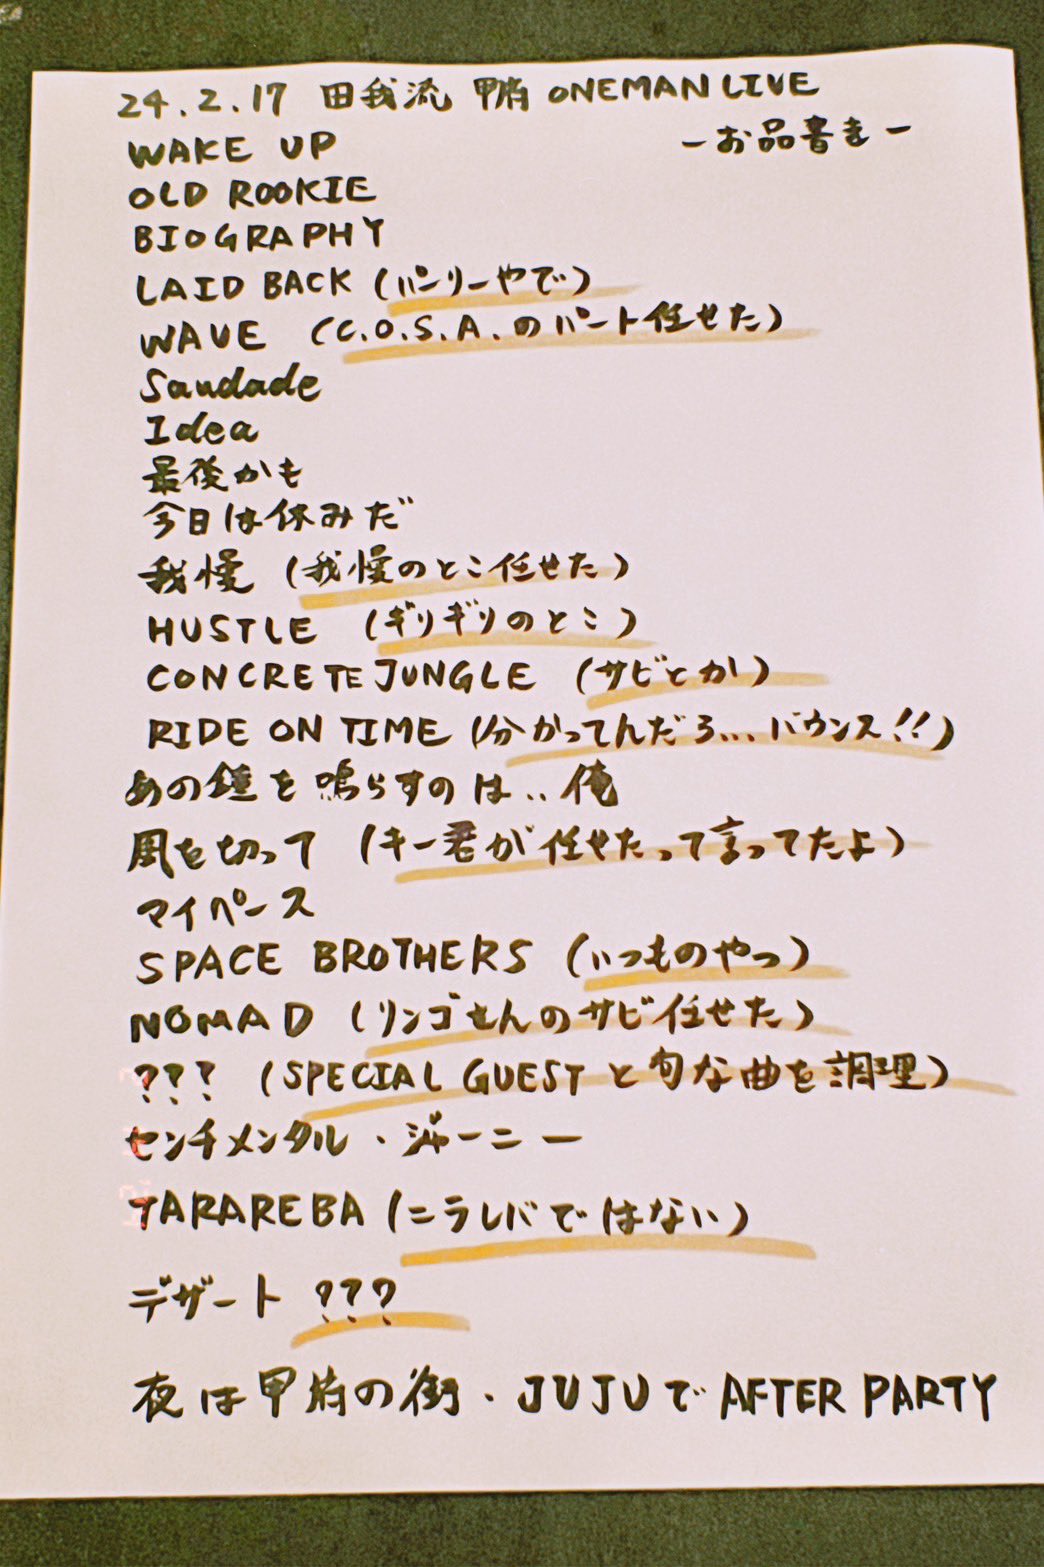 24.2.17 田我流 甲府 ONEMAN LIVE
-お品書き-
WAKE UP
OLD ROOKIE
BIOGRAPHY
LAID BACK (パンリーやで)
WAVE (C.O.S.A.のパート任せた)
Saudade
Idea
最後かも
今日は休みだ
我慢 (我慢のとこ任せた)
HUSTLE (ギリギリのとこ)
CONCRETE JUNGLE (サビとか)
RIDE ON TIME (分かってんだろ...バウンス!!)
あの鐘を鳴らすのは..俺
風を切って (キー君が任せたって言ってたよ)
マイペース
SPACE BROTHERS (いつものやつ)
NOMAD (リンゴさんのサビ任せた)
??? (SPECIAL GUESTと旬な曲を調理)
センチメンタル・ジャーニー
TARAREBA (ニラレバではない)
デザート ???
夜は甲府の街・JUJUでAFTER PARTY